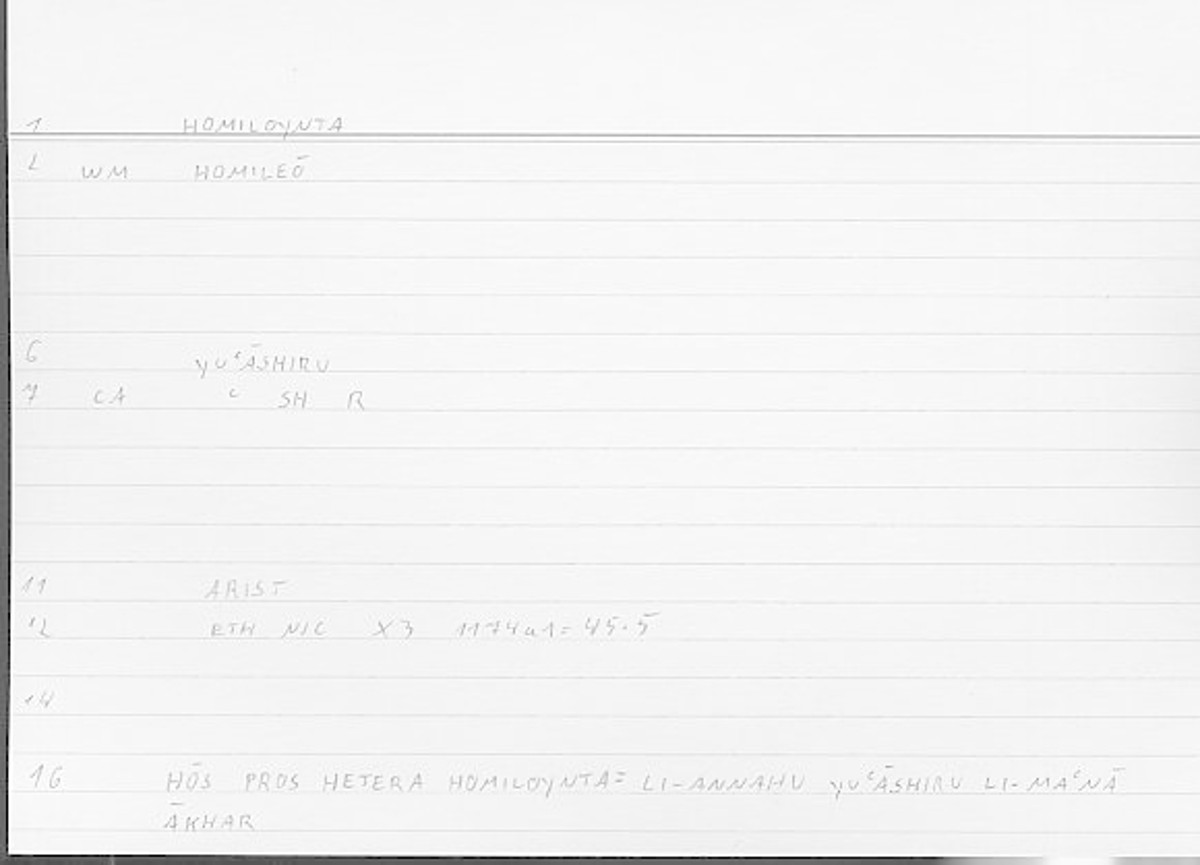 1 HOMILOYNTA
2 WM HOMILEŌ
6 YUʿĀSHIRU
7 CA ʿ SH R
11 ARIST
12 ETH NIC X3 1174a1= 45.5
14
16 HŌS PROS HETERA HOMILOYNTA= LI-ANNAHU YUʿĀSHIRU LI-MAʿNĀ
ĀKHAR